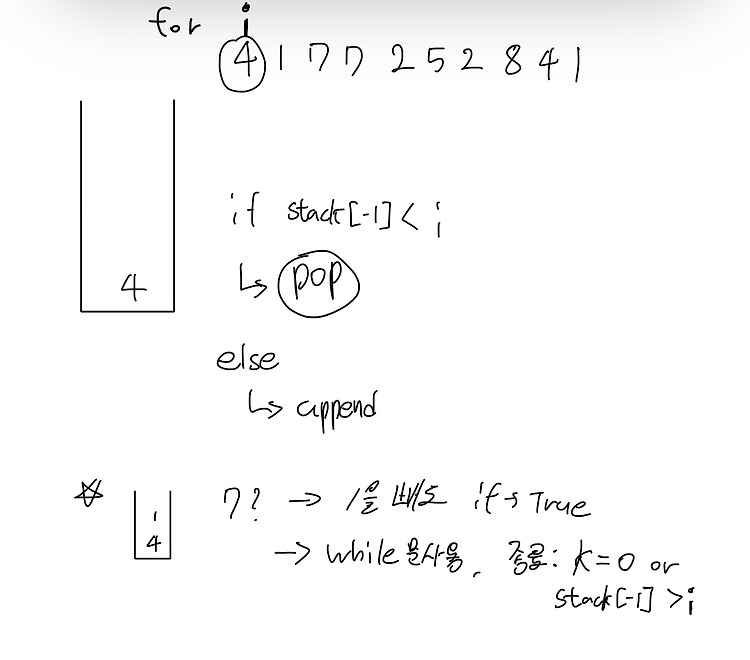 for i
4 1 7 7 2 5 2 8 4 1
if stack[-1] < i
↳ pop
4
else
↳ append
☆ 1 7? → 1을 빼도 if → True
4
→ while문 사용, 종료: k=0 or
stack[-1] > i